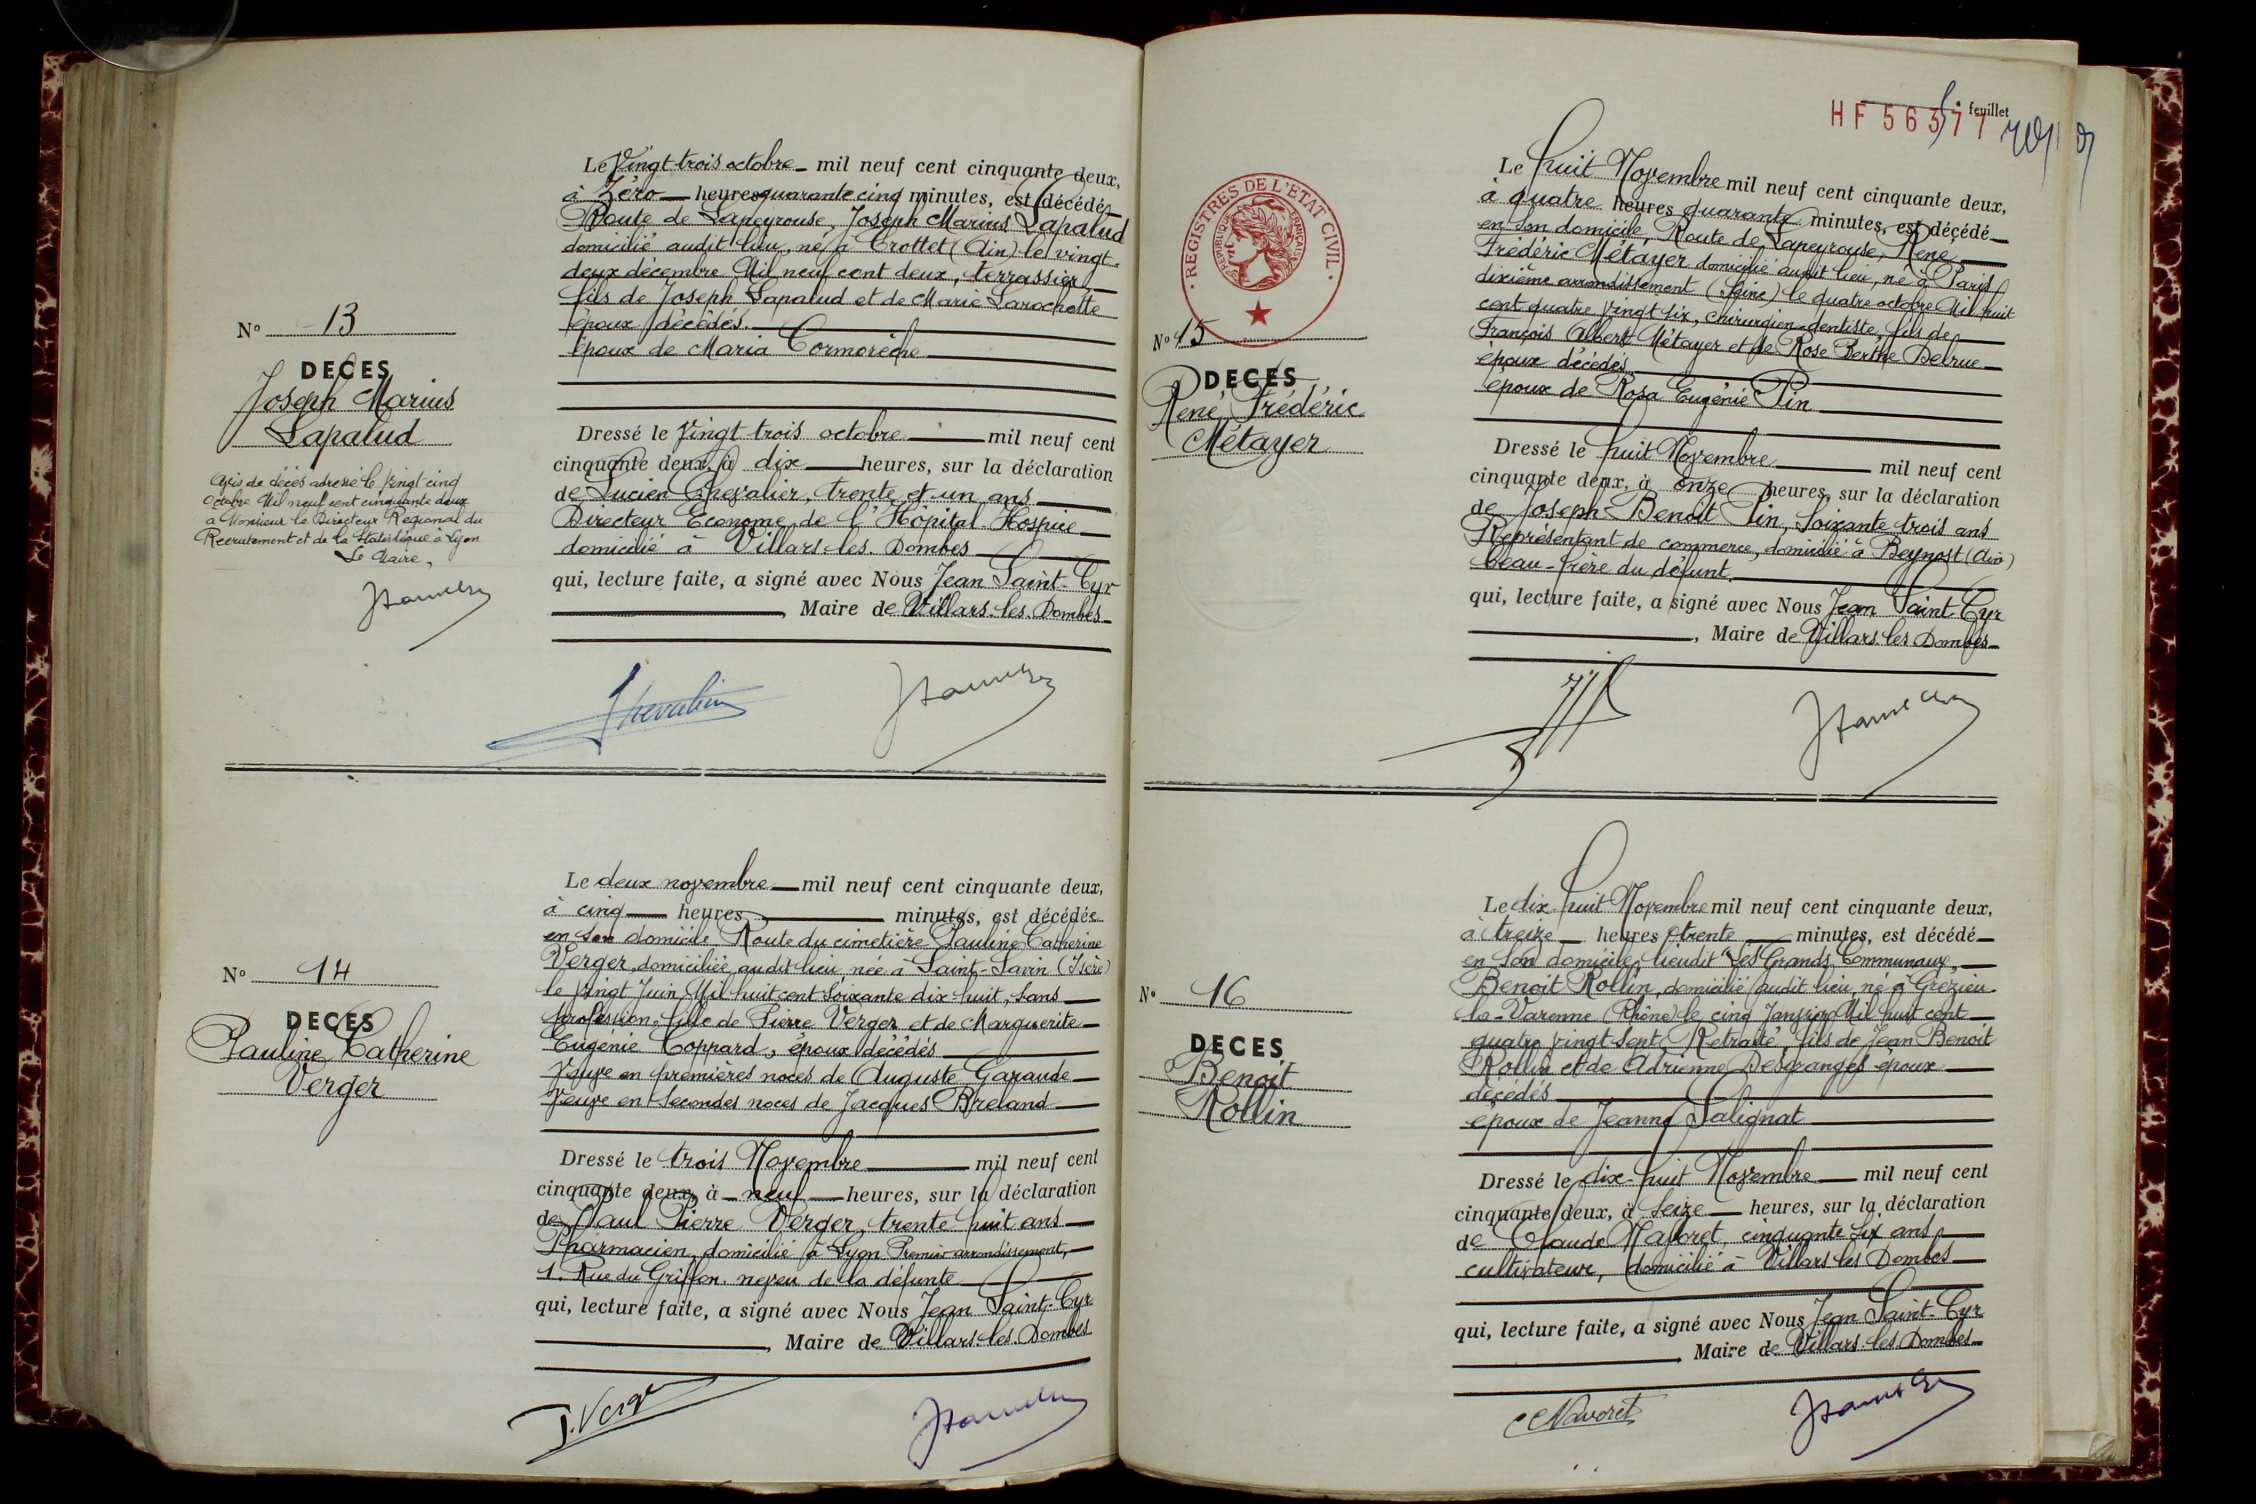 N° 13
DECES
Joseph Marius
Lapalud
Avis de décès adressé le vingt cinq
Octobre Mil neuf cent cinquante deux
a Monsieur le Directeur Régional du
Recrutement et de la Statistique à Lyon
Le Maire,
Le Vingt trois octobre mil neuf cent cinquante deux,
à Zéro heures quarante cinq minutes, est décédé
Route de Lapeyrouse, Joseph Marius Lapalud
domicilié audit lieu, né à Crottet (Ain) le vingt-
deux décembre Mil neuf cent deux, terrassier
fils de Joseph Lapalud et de Marie Larochette
époux décédés.
époux de Maria Cormorèche
Dressé le vingt trois octobre mil neuf cent
cinquante deux, à dix heures, sur la déclaration
de Lucien Chevalier, trente et un ans
Directeur Econome de l'Hôpital-Hospice
domicilié à Villars-les-Dombes
qui, lecture faite, a signé avec Nous Jean Saint-Cyr
, Maire de Villars-les-Dombes
Chevalier
N° 14
DECES
Pauline Catherine
Verger
Le deux novembre mil neuf cent cinquante deux,
à cinq heures minutes, est décédée
en son domicile, Route du cimetière Pauline Catherine
Verger, domiciliée audit lieu, née à Saint-Savin (Isère)
le vingt Juin Mil huit cent soixante dix huit, sans
profession, fille de Pierre Verger et de Marguerite
Eugénie Coppard, époux décédés
Veuve en premières noces de Auguste Garaude
Veuve en secondes noces de Jacques Breland
Dressé le trois Novembre mil neuf cent
cinquante deux, à neuf heures, sur la déclaration
de Paul Pierre Verger, trente huit ans
Pharmacien, domicilié à Lyon Premier arrondissement,
1. Rue du Griffon. neveu de la défunte
qui, lecture faite, a signé avec Nous Jean Saint-Cyr
, Maire de Villars-les-Dombes
HF 56377
feuillet
REGISTRES DE L'ETAT CIVIL
REPUBLIQUE FRANCAISE
N° 15
DECES
René Frédéric
Métayer
Le huit Novembre mil neuf cent cinquante deux,
à quatre heures quarante minutes, est décédé
en son domicile, Route de Lapeyrouse, René
Frédéric Métayer domicilié audit lieu, né à Paris
dixième arrondissement (Seine) le quatre octobre Mil huit
cent quatre vingt six, chirurgien-dentiste, fils de
François Albert Métayer et de Rose Berthe Delrue
époux décédés
époux de Rosa Eugénie Pin
Dressé le huit Novembre mil neuf cent
cinquante deux, à onze heures, sur la déclaration
de Joseph-Benoît Pin, soixante trois ans
Représentant de commerce, domicilié à Beynost (Ain)
beau-frère du défunt
qui, lecture faite, a signé avec Nous Jean Saint-Cyr
, Maire de Villars-les-Dombes
N° 16
DECES
Benoit
Rollin
Le dix-huit Novembre mil neuf cent cinquante deux,
à treize heures trente minutes, est décédé
en son domicile, lieudit "Les Grands Communaux,
Benoit Rollin, domicilié audit lieu, né à Grézieu
la-Varenne (Rhône) le cinq Janvier Mil huit cent
quatre vingt sept, Retraité, fils de Jean Benoit
Rollin et de Adrienne Desgranges époux
décédés
époux de Jeanne Salignat
Dressé le dix-huit Novembre mil neuf cent
cinquante deux, à seize heures, sur la déclaration
de Claude Navoret, cinquante six ans
cultivateur, domicilié à Villars les Dombes
qui, lecture faite, a signé avec Nous Jean Saint-Cyr
, Maire de Villars-les-Dombes
C Navoret